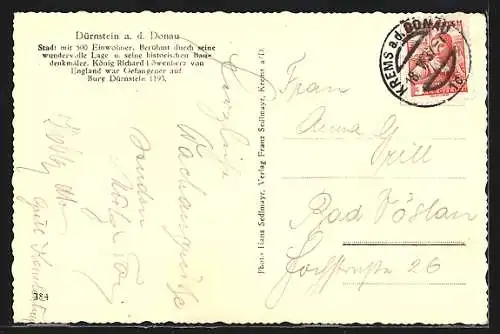 Dürnstein a. d. Donau
Stadt mit 500 Einwohner. Berühmt durch seine
wundervolle Lage u. seine historischen Bau-
denkmäler. König Richard Löwenherz von
England war Gefangener auf
Burg Dürnstein 1193.
Herzliche
Wachaugrüße
senden
Photo Hans Sedlmayr, Verlag Franz Sedlmayr, Krems a/D.
KREMS a.d. DONAU
Frau
Anna Grill
Bad Vöslau
Hochstrasse 26
384